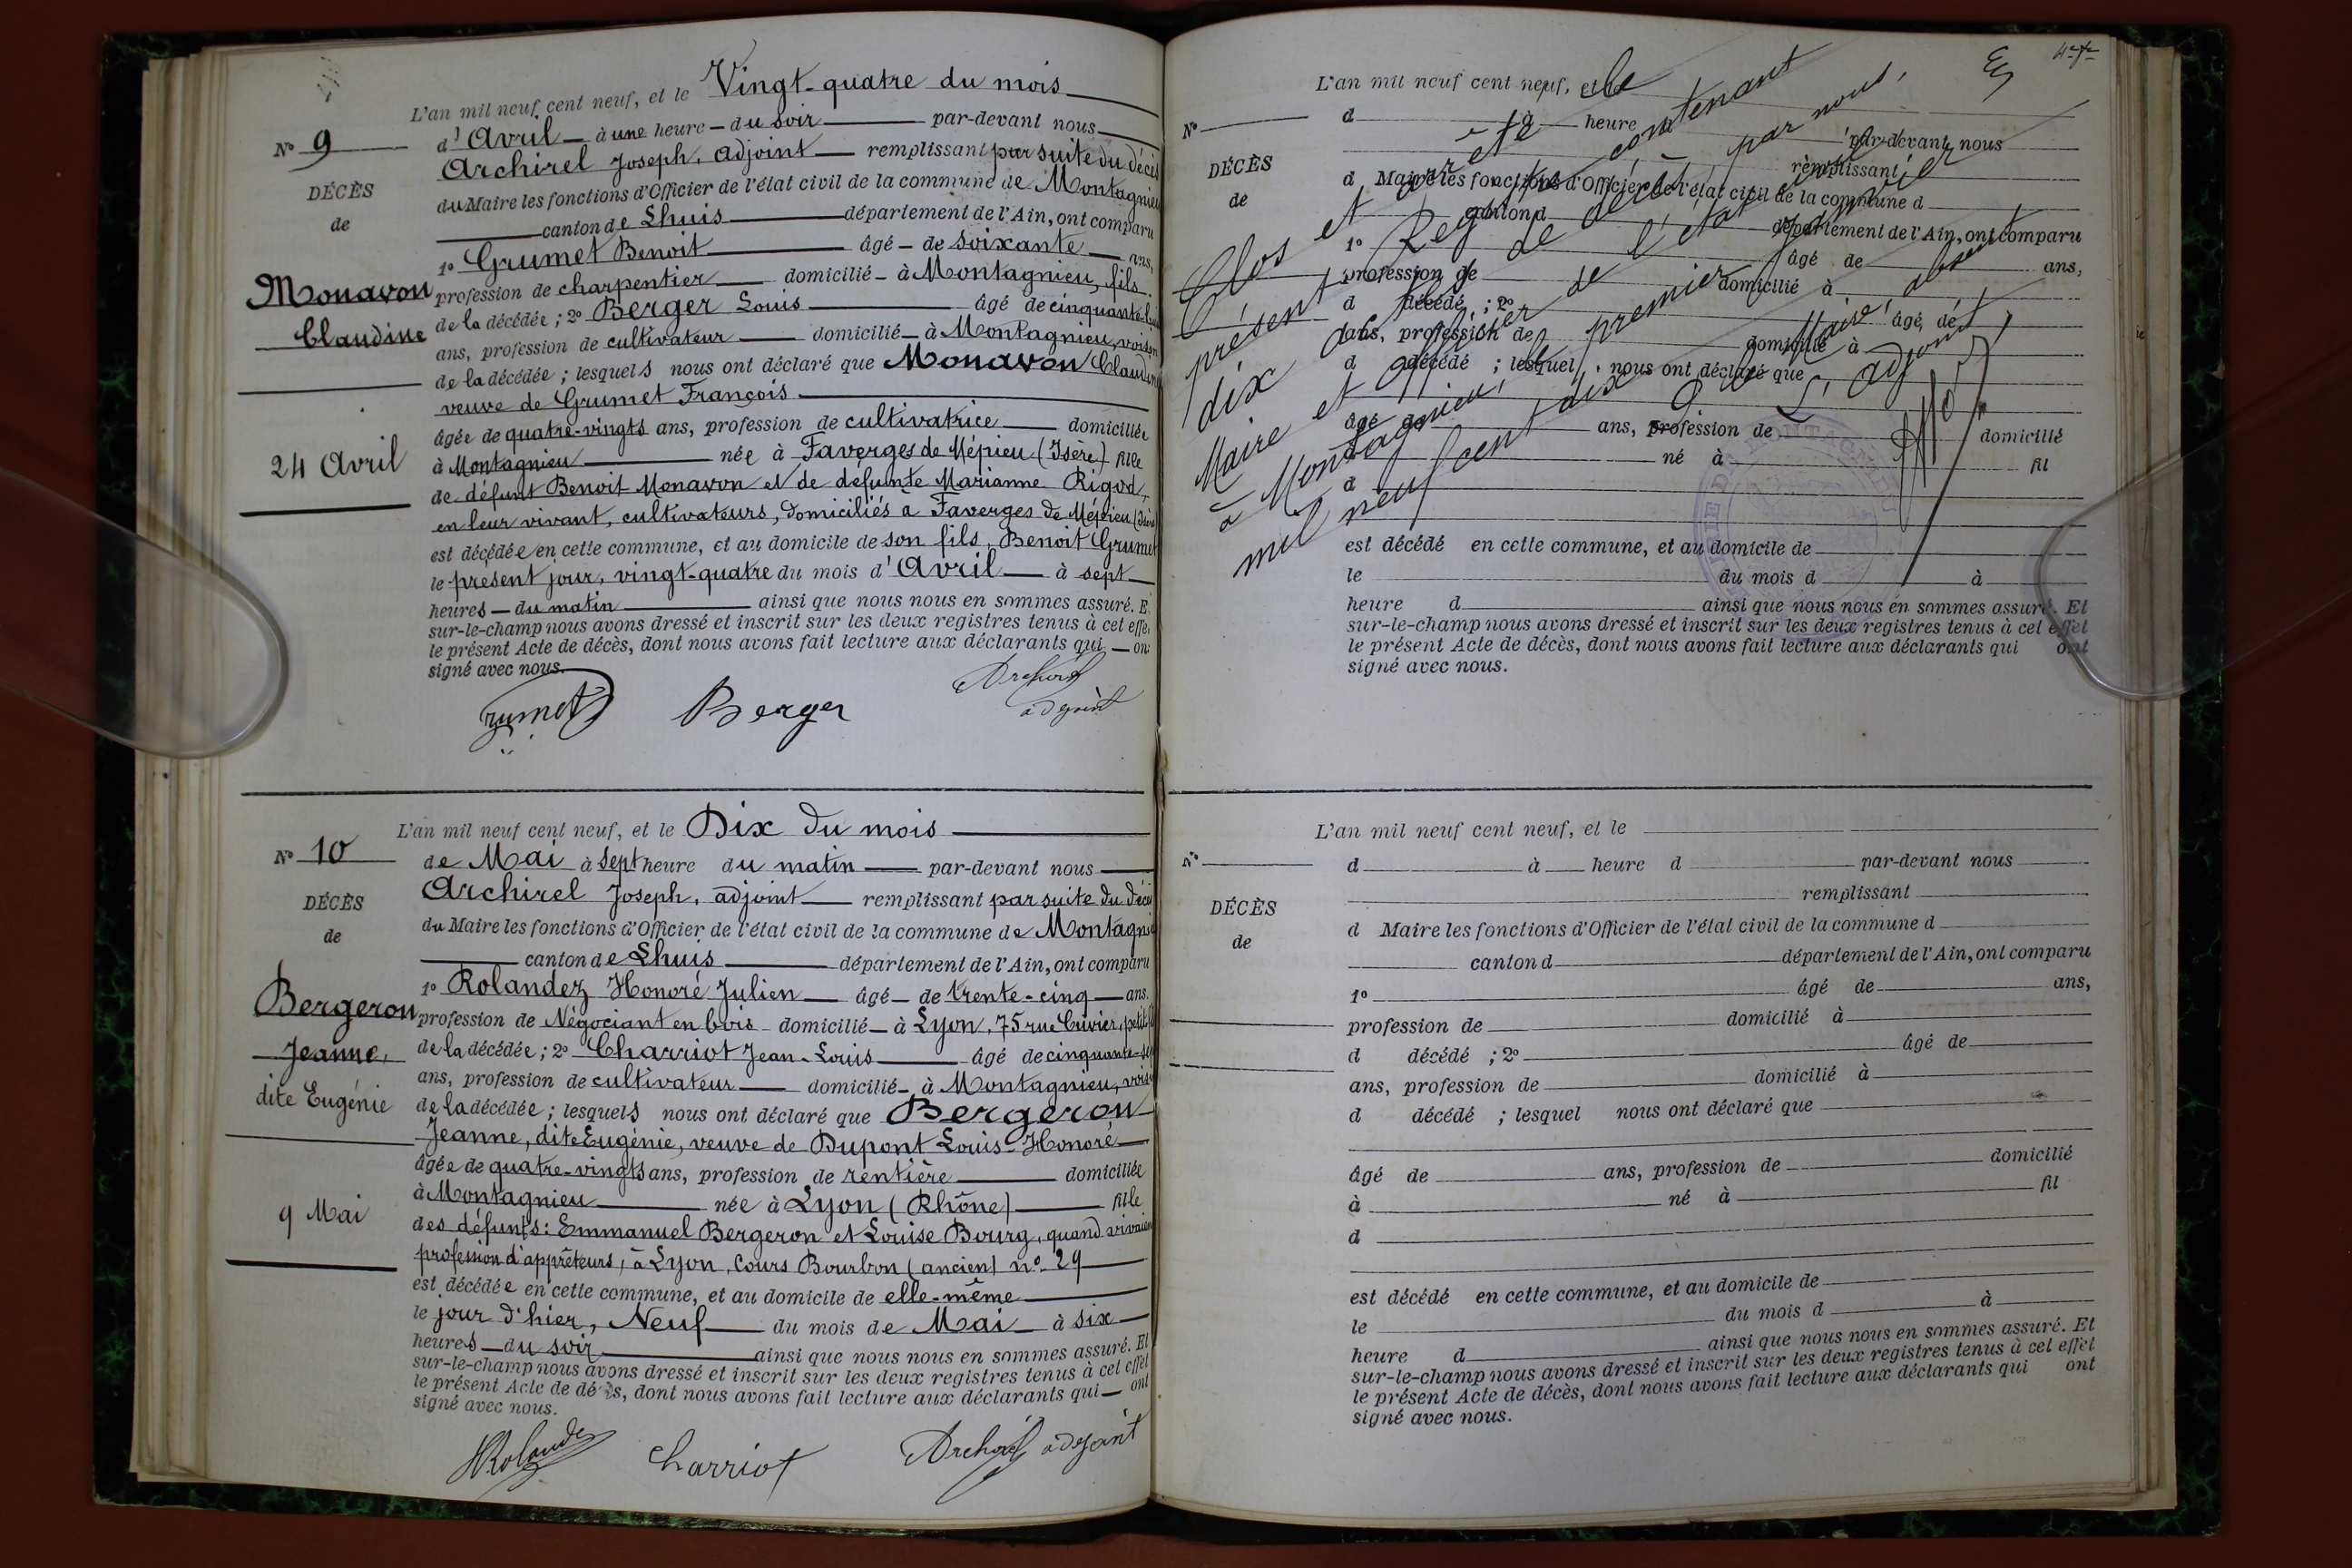 L'an mil neuf cent neuf, et le Vingt-quatre du mois
N° 9
d'Avril à une heure du soir par-devant nous
Archirel Joseph, adjoint remplissant par suite du décès
DÉCÈS
du Maire les fonctions d'Officier de l'état civil de la commune de Montagnieu
de
canton de Lhuis département de l'Ain, ont comparu
1° Grumet Benoit âgé de soixante ans,
Monavon
profession de charpentier domicilié à Montagnieu, fils
Claudine
de la décédée ; 2° Berger Louis âgé de cinquante-
ans, profession de cultivateur domicilié à Montagnieu, voisin
de la décédée ; lesquels nous ont déclaré que Monavon Claudine
veuve de Grumet François
âgée de quatre-vingts ans, profession de cultivatrice domiciliée
24 Avril
à Montagnieu née à Faverges de Mépieu (Isère) fille
de défunt Benoit Monavon et de defunte Marianne Rigod,
en leur vivant, cultivateurs, domiciliés à Faverges de Mépieu (Isère)
est décédée en cette commune, et au domicile de son fils, Benoit Grumet
le présent jour, vingt-quatre du mois d'Avril à sept
heures du matin ainsi que nous nous en sommes assuré. E
sur-le-champ nous avons dressé et inscrit sur les deux registres tenus à cet effe
le présent Acte de décès, dont nous avons fait lecture aux déclarants qui on
signé avec nous.
Grumet Berger Archirel
adjoint
L'an mil neuf cent neuf, et le Dix du mois
N° 10
de Mai à sept heure du matin par-devant nous
Archirel Joseph, adjoint remplissant par suite du décès
DÉCÈS
du Maire les fonctions d'Officier de l'état civil de la commune de Montagnieu
de
canton de Lhuis département de l'Ain, ont comparu
1° Rolandez Honoré Julien âgé de trente-cinq ans.
Bergeron
profession de Négociant en bois domicilié à Lyon, 75 rue Cuvier, petit-fils
Jeanne,
de la décédée ; 2° Charriot Jean-Louis âgé de cinquante-sept
ans, profession de cultivateur domicilié à Montagnieu, voisin
dite Eugénie
de la décédée ; lesquels nous ont déclaré que Bergeron
Jeanne, dite Eugénie, veuve de Dupont Louis-Honoré
âgée de quatre-vingts ans, profession de rentière domiciliée
à Montagnieu née à Lyon (Rhône) fille
9 Mai
des défunts : Emmanuel Bergeron et Louise Bourg, quand vivaient
profession d'apprêteurs, à Lyon, Cours Bourbon (ancien) n° 29
est décédée en cette commune, et au domicile de elle-même
le jour d'hier, Neuf du mois de Mai à six
heures du soir ainsi que nous nous en sommes assuré. Et
sur-le-champ nous avons dressé et inscrit sur les deux registres tenus à cet effet
le présent Acte de décès, dont nous avons fait lecture aux déclarants qui ont
signé avec nous.
HRolandez Charriot Archirel adjoint
L'an mil neuf cent neuf, et le
N°
d à heure par-devant nous
remplissant
DÉCÈS
d Maire les fonctions d'Officier de l'état civil de la commune d
de
canton d département de l'Ain, ont comparu
1° âgé de ans,
profession de domicilié à
d décédé ; 2° âgé de
ans, profession de domicilié à
d décédé ; lesquel nous ont déclaré que
âgé de ans, profession de domicilié
à né à fil
d
est décédé en cette commune, et au domicile de
le du mois d à
heure d ainsi que nous nous en sommes assuré. Et
sur-le-champ nous avons dressé et inscrit sur les deux registres tenus à cet effet
le présent Acte de décès, dont nous avons fait lecture aux déclarants qui ont
signé avec nous.
Clos et arrêté le
présent Registre contenant
dix actes de décès, par nous,
Maire et officier de l'état civil
à Montagnieu, le premier janvier
mil neuf cent dix
P. le Maire, absent,
L'adjoint,
L'an mil neuf cent neuf, et le
N°
d à heure d par-devant nous
remplissant
DÉCÈS
d Maire les fonctions d'Officier de l'état civil de la commune d
de
canton d département de l'Ain, ont comparu
1° âgé de ans,
profession de domicilié à
d décédé ; 2° âgé de
ans, profession de domicilié à
d décédé ; lesquel nous ont déclaré que
âgé de ans, profession de domicilié
à né à fil
d
est décédé en cette commune, et au domicile de
le du mois d à
heure d ainsi que nous nous en sommes assuré. Et
sur-le-champ nous avons dressé et inscrit sur les deux registres tenus à cet effet
le présent Acte de décès, dont nous avons fait lecture aux déclarants qui ont
signé avec nous.